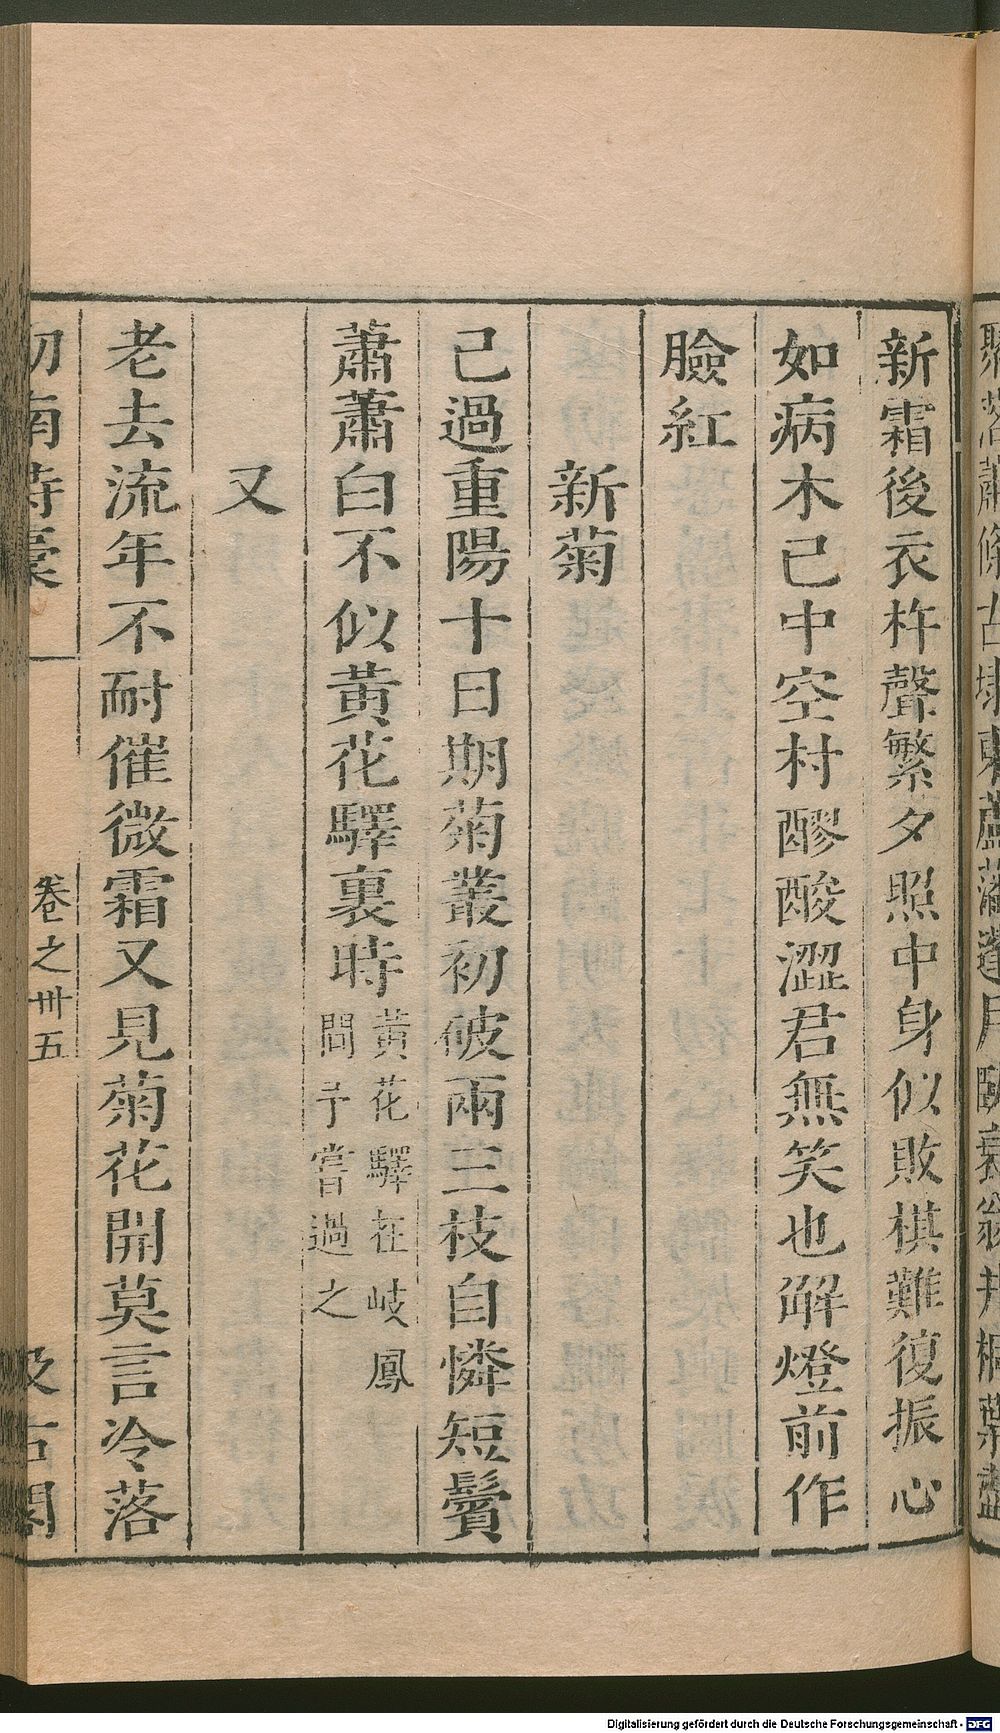 新霜後衣杵聲繁夕照中身似敗棋難復振心
如病木已中空村醪酸澀君無笑也解燈前作
臉紅
新菊
已過重陽十日期菊叢初破兩三枝自憐短鬢
蕭蕭白不似黃花驛裏時黃花驛在岐鳳
間予嘗過之
又
老去流年不耐催微霜又見菊花開莫言冷落
卷之卅五
Digitalisierung gefördert durch die Deutsche Forschungsgemeinschaft - DFG